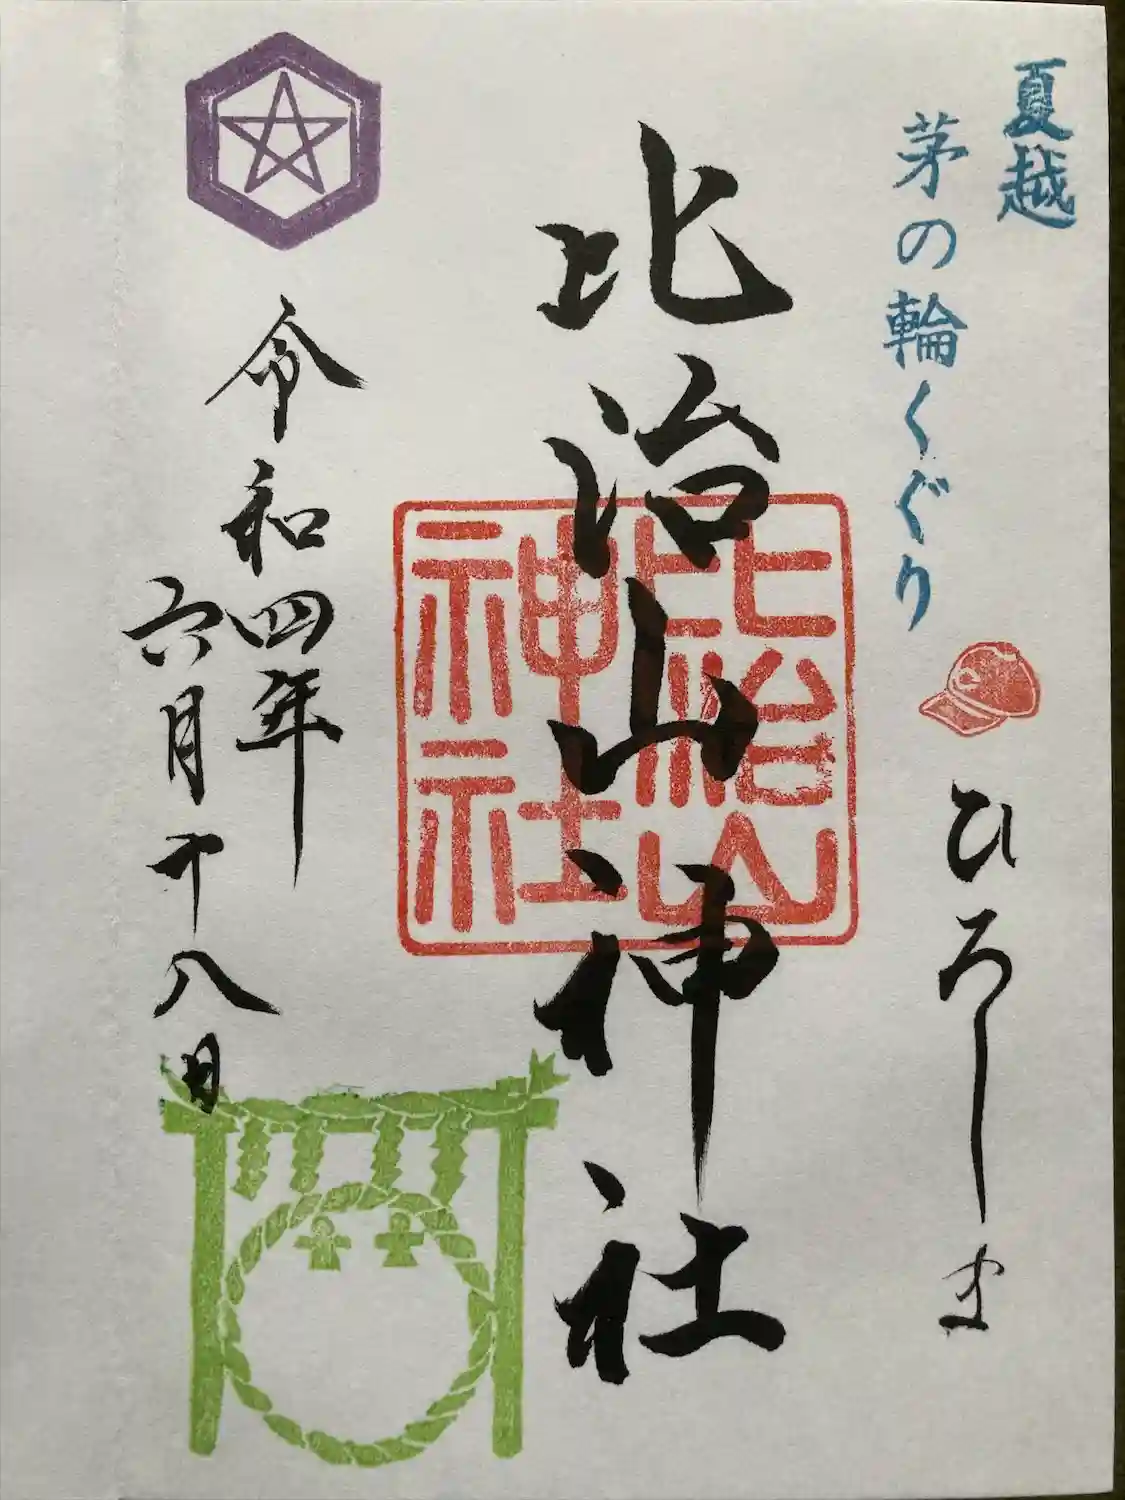 夏越
茅の輪くぐり
ひろしま
比治山神社
比治山
神社
令和四年
六月十八日